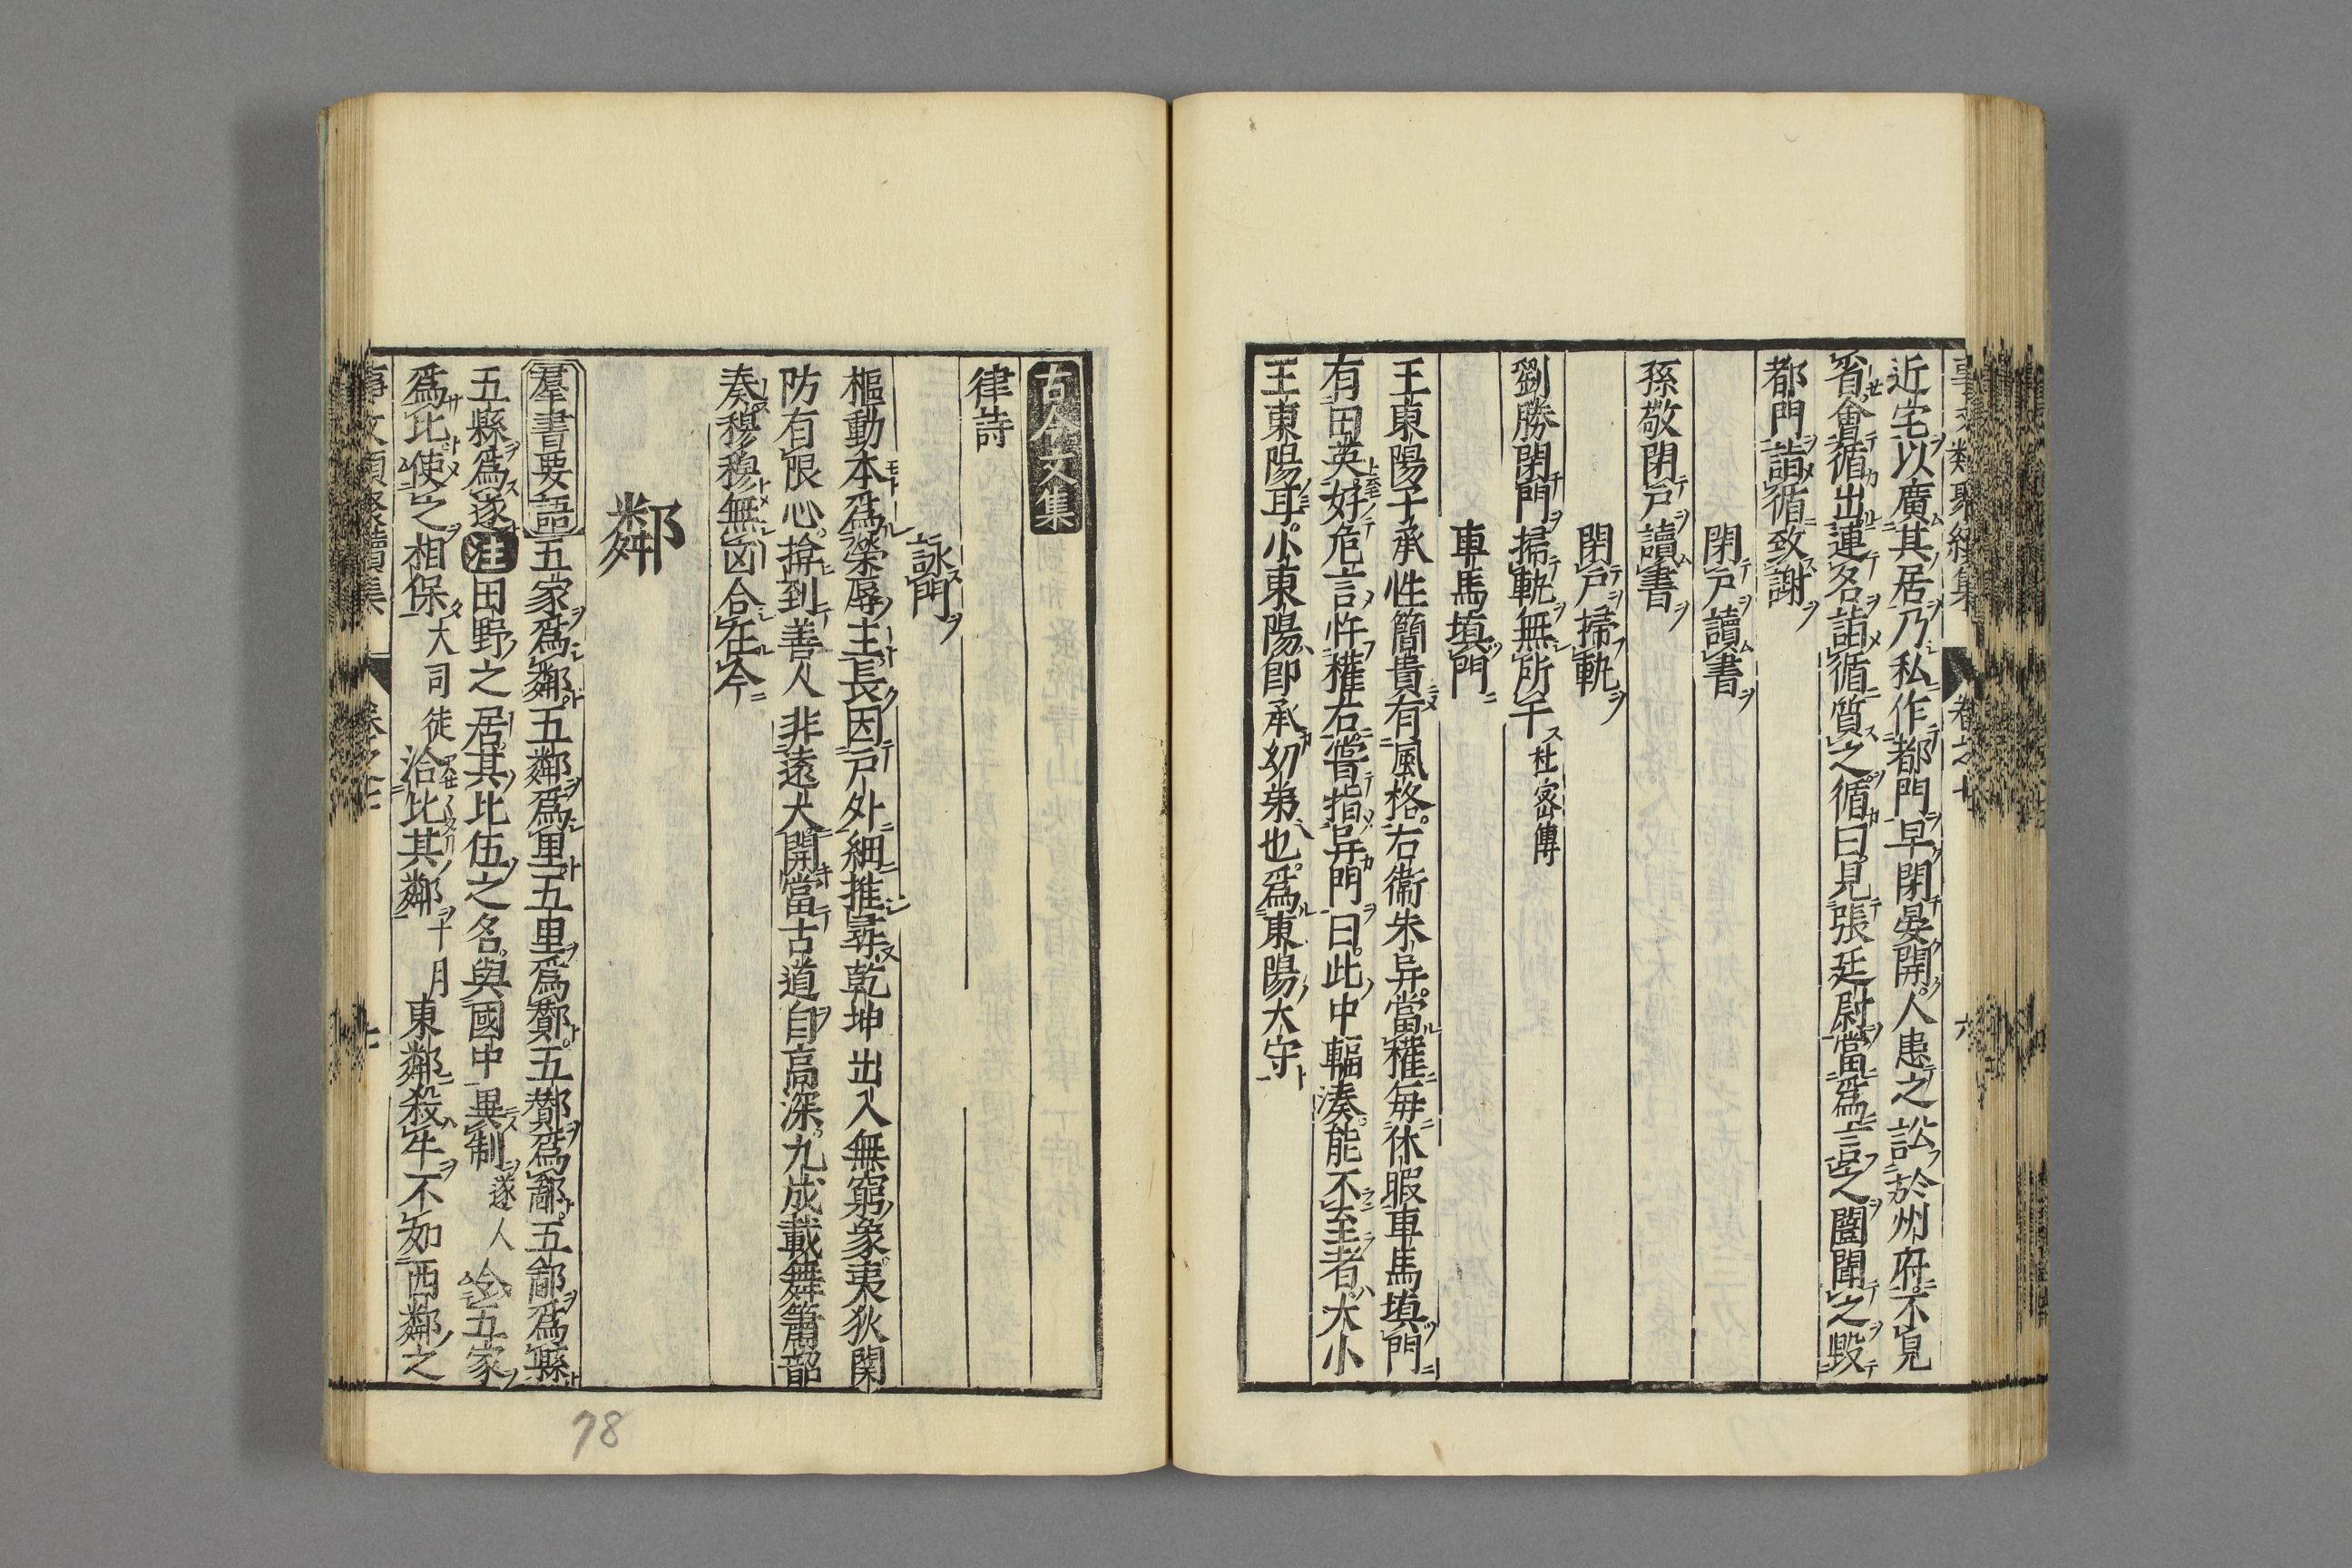 近宅以廣其居乃私作都門早閉晏開人患之訟於州府不見
省會循出運各詣循質之循曰見張廷尉當爲言之闓聞之毀
都門詣循致謝
閉戸讀書
孫敬閉戸讀書
閉戸掃軌
劉勝閉門掃軌無所干 杜密傳
車馬塡門
王東陽子承性簡貴有風格右衞朱异當權毎休暇車馬塡門
有田英好危言忤權右嘗指异門曰此中輻湊能不至者大小
王東陽耳小東陽即承幼弟也爲東陽太守
古今文集
律詩
詠門
樞動本爲榮辱主長因戸外細推尋乾坤出入無窮象夷狄関
防有限心揜到善人非遠大開當古道自高深九成載舞簫韶
奏穆穆無凶合在今
鄰
羣書要語 五家爲鄰五鄰爲里五里爲酇五酇爲鄙五鄙爲縣
五縣爲遂 注 田野之居其比伍之名與國中異制 遂人 令五家
爲比使之相保 大司徒 洽比其鄰 十月 東鄰殺牛不如西鄰之
事文類聚續集 卷之七
78